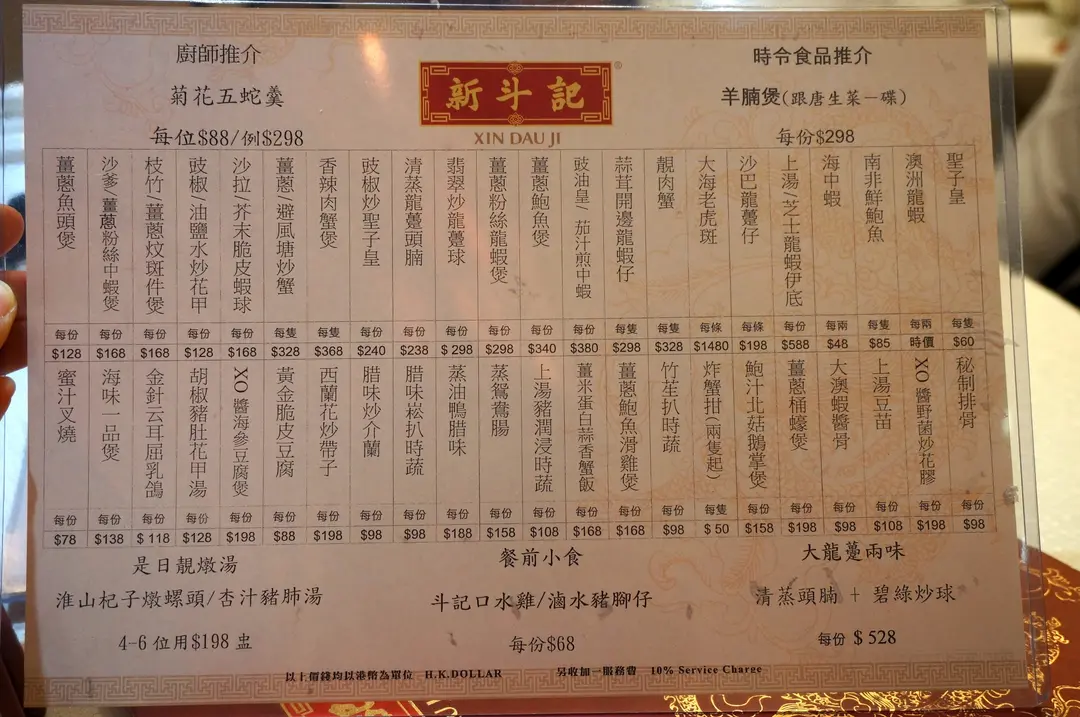 廚師推介
菊花五蛇羹
每位$88/例$298
新斗記
®
XIN DAU JI
時令食品推介
羊腩煲(跟唐生菜一碟)
每份$298
聖子皇
每隻
$60
澳洲龍蝦
每兩
時價
南非鮮鮑魚
每隻
$85
海中蝦
每兩
$48
上湯/芝士龍蝦伊底
每份
$588
沙巴龍躉仔
每條
$198
大海老虎斑
每條
$1480
靚肉蟹
每隻
$328
蒜茸開邊龍蝦仔
每隻
$298
豉油皇/茄汁煎中蝦
每份
$380
薑蔥鮑魚煲
每份
$340
薑蔥粉絲龍蝦煲
每份
$298
翡翠炒龍躉球
每份
$ 298
清蒸龍躉頭腩
每份
$238
豉椒炒聖子皇
每份
$240
香辣肉蟹煲
每隻
$368
薑蔥/避風塘炒蟹
每隻
$328
沙拉/芥末脆皮蝦球
每份
$168
豉椒/油鹽水炒花甲
每份
$128
枝竹/薑蔥炆斑件煲
每份
$168
沙爹/薑蔥粉絲中蝦煲
每份
$168
薑蔥魚頭煲
每份
$128
秘制排骨
每份
$98
XO醬野菌炒花膠
每份
$198
上湯豆苗
每份
$108
大澳蝦醬骨
每份
$98
薑蔥桶蠔煲
每份
$198
鮑汁北菇鵝掌煲
每份
$158
炸蟹拑(兩隻起)
每隻
$ 50
竹笙扒時蔬
每份
$98
薑蔥鮑魚滑雞煲
每份
$168
薑米蛋白蒜香蟹飯
每份
$168
上湯豬潤浸時蔬
每份
$108
蒸鴛鴦腸
每份
$158
蒸油鴨腊味
每份
$188
腊味崧扒時蔬
每份
$98
腊味炒介蘭
每份
$98
西蘭花炒帶子
每份
$198
黃金脆皮豆腐
每份
$88
XO醬海參豆腐煲
每份
$198
胡椒豬肚花甲湯
每份
$128
金針云耳屈乳鴿
每份
$ 118
海味一品煲
每份
$138
蜜汁叉燒
每份
$78
是日靚燉湯
淮山杞子燉螺頭/杏汁豬肺湯
4-6 位用$198 盅
餐前小食
斗記口水雞/滷水豬腳仔
每份$68
大龍躉兩味
清蒸頭腩 + 碧綠炒球
每份 $ 528
以上價錢均以港幣為單位 H.K.DOLLAR 另收加一服務費 10% Service Charge